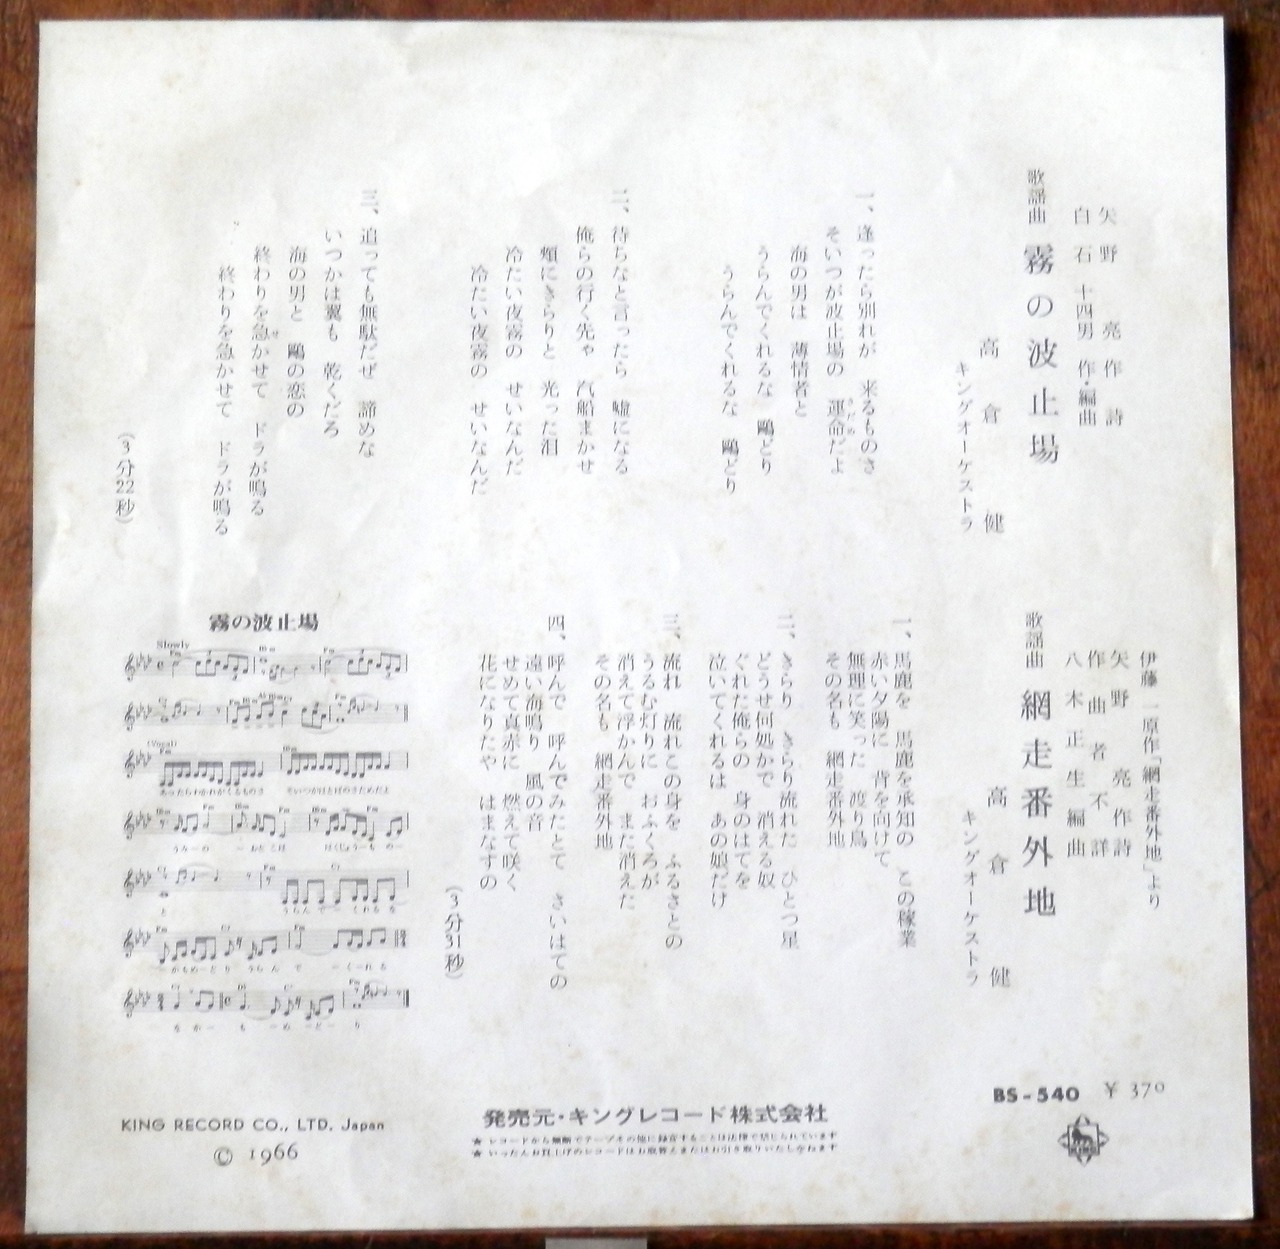 矢野亮 作詩
白石十四男 作・編曲
歌謡曲 霧の波止場
高倉健
キングオーケストラ
一、逢ったら別れが 来るものさ
そいつが波止場の 運命だよ
さだめ
海の男は 薄情者と
うらんでくれるな 鷗どり
うらんでくれるな 鷗どり
二、待ちなと言ったら 嘘になる
俺らの行く先ゃ 汽船まかせ
頬にきらりと 光った泪
冷たい夜霧の せいなんだ
冷たい夜霧の せいなんだ
三、追っても無駄だぜ 諦めな
いつかは翼も 乾くだろ
海の男と 鷗の恋の
終わりを急かせて ドラが鳴る
終わりを急かせて ドラが鳴る
(3分22秒)
伊藤一原作「網走番外地」より
矢野亮 作詩
作曲者不詳
八木正生 編曲
歌謡曲 網走番外地
高倉健
キングオーケストラ
一、馬鹿を 馬鹿を承知の この稼業
赤い夕陽に 背を向けて
無理に笑った 渡り鳥
その名も 網走番外地
二、きらり きらり流れた ひとつ星
どうせ何処かで 消える奴
ぐれた俺らの 身のはてを
泣いてくれるは あの娘だけ
三、流れ 流れこの身を ふるさとの
うるむ灯りに おふくろが
消えて浮かんで また消えた
その名も 網走番外地
四、呼んで 呼んでみたとて さいはての
遠い海鳴り 風の音
せめて真赤に 燃えて咲く
花になりたや はまなすの
(3分31秒)
霧の波止場
Slowly
(Vocal)
あったらわかれがくるものさ そいつがはとばのさだめだよ
BS-540 ¥370
発売元・キングレコード株式会社
★レコードから無断でテープその他に録音することは法律で禁じられています
★いったんお買上げのレコードはお取替えまたはお引き取りいたしかねます
KING RECORD CO., LTD. Japan
© 1966